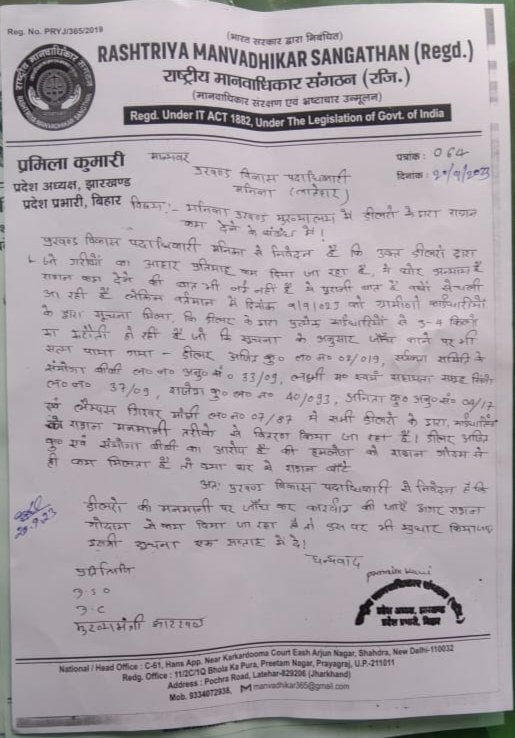 Reg. No. PRYJ/365/2019
(भारत सरकार द्वारा निबंधित)
RASHTRIYA MANVADHIKAR SANGATHAN (Regd.)
राष्ट्रीय मानवाधिकार संगठन (रजि.)
(मानवाधिकार संरक्षण एवं भ्रष्टाचार उन्मूलन)
Regd. Under IT ACT 1882, Under The Legislation of Govt. of India
प्रमिला कुमारी
प्रदेश अध्यक्ष, झारखण्ड
प्रदेश प्रभारी, बिहार
पत्रांक : 064
दिनांक : 20/9/2023
प्रखण्ड विकास पदाधिकारी
मनिका (लातेहार)
विषय :- मनिका प्रखण्ड मुख्यालय में डीलरों के द्वारा राशन
कम देने के संबंध में।
प्रखण्ड विकास पदाधिकारी मनिका से निवेदन है कि उक्त डीलरों द्वारा
जो गरीबों का आहार प्रतिमाह कम दिया जा रहा है, ये घोर अन्याय है
राशन कम देने की बात भी नई नहीं है ये पुरानी बात है वर्षों से चली
आ रही है लेकिन वर्तमान में दिनांक 9/9/023 को ग्रामीणों कार्डधारियों
के द्वारा सूचना मिला, कि डीलर के द्वारा प्रत्येक कार्डधारियों से 3-4 किलो
का कटौती हो रही है जो कि सूचना के अनुसार जाँच करने पर भी
सत्य पाया गया - डीलर अजित कु० ल० न० 02/019,
संजोगा बीबी ल० न० अनु० सं० 33/09, लक्ष्मी म० स्वयं सहायता समूह
ल० न० 37/09, राजेश कु० ल० न० 40/093, अनिता कु० अनु० सं० 04/17
एवं लैम्पस ल० न० 07/87 में सभी डीलरों के द्वारा,
राशन मनमानी तरीके से वितरण किया जा रहा है। डीलर अजित
कु० एवं संजोगा बीबी का आरोप है की हमलोग को राशन गोदाम से
ही कम मिलता है तो क्या घर से राशन बाँटे
अतः प्रखण्ड विकास पदाधिकारी से निवेदन है कि
डीलरों की मनमानी पर जाँच कर कारवाई की जाएँ अगर राशन
गोदाम से कम दिया जा रहा है तो उस पर भी सुधार किया जाए
इसकी सूचना एक सप्ताह में दे।
20.9.23
धन्यवाद
प्रतिलिपि
D.S.O
D.C
मुख्यमंत्री झारखण्ड
प्रदेश अध्यक्ष, झारखण्ड
प्रदेश प्रभारी, बिहार
National / Head Office : C-61, Hans App. Near Karkardooma Court East Arjun Nagar, Shahdra, New Delhi-110032
Redg. Office : 11/2C/1Q Bhola Ka Pura, Preetam Nagar, Prayagraj, U.P.-211011
Address : Pochra Road, Latehar-829206 (Jharkhand)
Mob. 9334072938, manvadhikar365@gmail.com